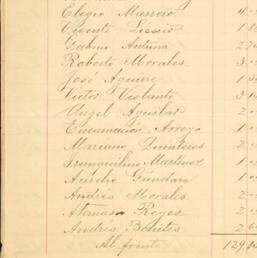 Elegio Marrero
Vicente Lissier
Gabino Antuna
Roberto Morales 3
José Aguirre 1
Victor Violante 3
Angel Aguilar 2
Encarnación Arroyo 1
Mariano Quinteros 2
Tranquilino Martinez 1
Aurelio Gándara
Andrés Morales 2
Atanasa Reyes 2
Andrés Benites 2
Al frente 129